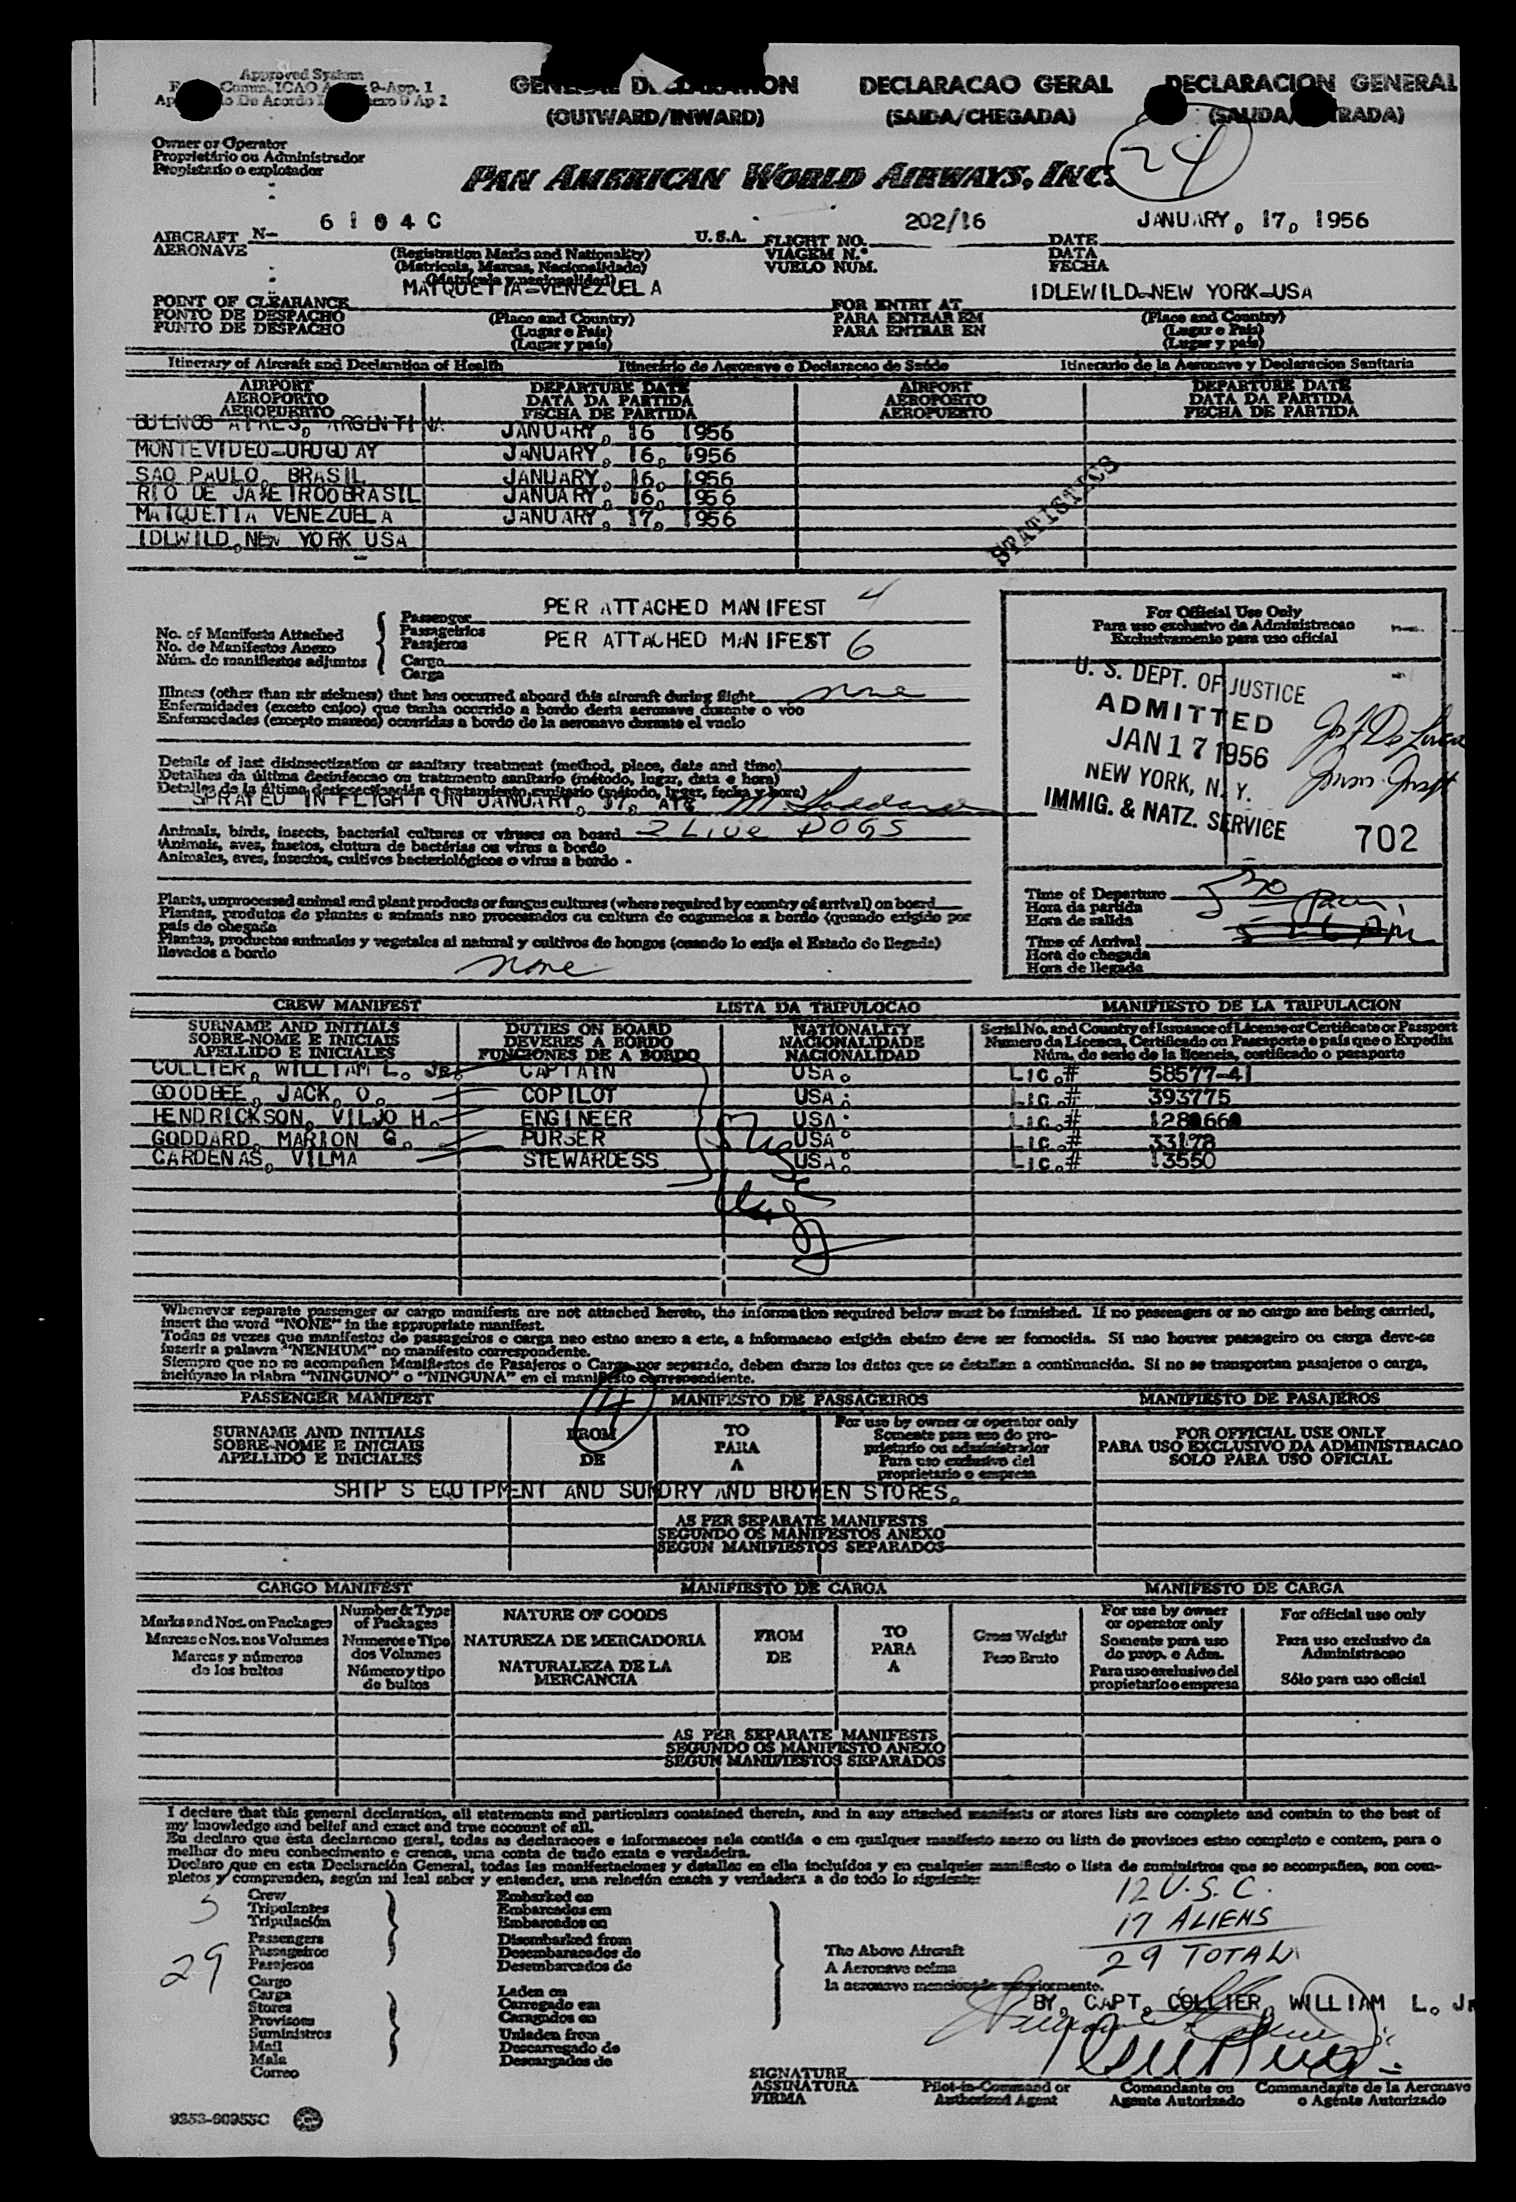 Approved System
GENERAL DECLARATION DECLARACAO GERAL DECLARACION GENERAL
(OUTWARD/INWARD) (SAIDA/CHEGADA)
24
Owner or Operator
Proprietário ou Administrador
Propietario o explotador
PAN AMERICAN WORLD AIRWAYS, INC.
AIRCRAFT N- 6104C U.S.A. FLIGHT NO. 202/16 DATE JANUARY, 17, 1956
AERONAVE (Registration Marks and Nationality) VIAGEM N.º DATA
(Matricula, Marcas, Nacionalidade) VUELO NUM. FECHA
(Matricula y nacionalidad)
MAIQUETIA-VENEZUELA IDLEWILD-NEW YORK-USA
POINT OF CLEARANCE FOR ENTRY AT
PONTO DE DESPACHO (Place and Country) PARA ENTRAR EM (Place and Country)
PUNTO DE DESPACHO (Lugar e País) PARA ENTRAR EN (Lugar e País)
(Lugar y país) (Lugar y país)
Itinerary of Aircraft and Declaration of Health Itinerário de Aeronave e Declaracao de Saúde Itinerario de la Aeronave y Declaracion Sanitaria
AIRPORT DEPARTURE DATE AIRPORT DEPARTURE DATE
AEROPORTO DATA DA PARTIDA AEROPORTO DATA DA PARTIDA
AEROPUERTO FECHA DE PARTIDA AEROPUERTO FECHA DE PARTIDA
BUENOS AIRES, ARGENTINA JANUARY, 16 1956
MONTEVIDEO-URUGUAY JANUARY, 16, 1956
SAO PAULO, BRASIL JANUARY, 16, 1956
RIO DE JANEIROOBRASIL JANUARY, 16, 1956
MAIQUETIA VENEZUELA JANUARY, 17, 1956
IDLWILD,NEW YORK USA
STATISTICS
PER ATTACHED MANIFEST 4
Passenger
No. of Manifests Attached Passageiros
No. de Manifestos Anexo Pasajeros PER ATTACHED MANIFEST 6
Núm. de manifiestos adjuntos Cargo
Carga
For Official Use Only
Para uso exclusivo da Administracao
Exclusivamente para uso oficial
U. S. DEPT. OF JUSTICE
ADMITTED
JAN 17 1956
NEW YORK, N. Y.
IMMIG. & NATZ. SERVICE
702
Illness (other than air sickness) that has occurred aboard this aircraft during flight none
Enfermidades (exceto enjoo) que tenha ocorrido a bordo desta aeronave durante o voo
Enfermedades (excepto mareos) ocurridas a bordo de la aeronave durante el vuelo
Details of last disinsectization or sanitary treatment (method, place, date and time)
Detalhes da última desinfeccao ou tratamento sanitario (método, lugar, data e hora)
Detalles de la última desinsectización o tratamiento sanitario (método, lugar, fecha y hora)
SPRAYED IN FLIGHT ON JANUARY, 17, AT:
Animals, birds, insects, bacterial cultures or viruses on board 2 Live DOGS
Animais, aves, insetos, clutura de bactérias ou virus a bordo
Animales, aves, insectos, cultivos bacteriológicos o virus a bordo
Plants, unprocessed animal and plant products or fungus cultures (where required by country of arrival) on board
Plantas, produtos de plantas e animais nao processados ou cultura de cogumelos a bordo (quando exigido por
país de chegada
Plantas, productos animales y vegetales al natural y cultivos de hongos (cuando lo exija el Estado de llegada)
llevados a bordo
none
Time of Departure 530 pm
Hora da partida
Hora de salida
Time of Arrival
Hora de chegada
Hora de llegada
CREW MANIFEST LISTA DA TRIPULOCAO MANIFIESTO DE LA TRIPULACION
SURNAME AND INITIALS DUTIES ON BOARD NATIONALITY Serial No. and Country of Issuance of License or Certificate or Passport
SOBRE-NOME E INICIAIS DEVERES A BORDO NACIONALIDADE Numero da Licenca, Certificado ou Passaporte o país que o Expediu
APELLIDO E INICIALES FUNCIONES DE A BORDO NACIONALIDAD Núm. de serie de la licencia, certificado o pasaporte
COLLIER, WILLIAM L. JR. CAPTAIN USA. Lic.# 58577-41
GOODBEE, JACK, O. COPILOT USA. Lic.# 393775
HENDRICKSON, VILJO H. ENGINEER USA. Lic.# 1280660
GODDARD, MARION G. PURSER USA. Lic.# 33178
CARDENAS, VILMA STEWARDESS USA. Lic.# 13550
Whenever separate passenger or cargo manifests are not attached hereto, the information required below must be furnished. If no passengers or no cargo are being carried,
insert the word "NONE" in the appropriate manifest.
Todas as vezes que manifestos de passageiros e carga nao estao anexo a este, a informacao exigida abaixo deve ser fornecida. Si nao houver passageiro ou carga deve-se
inserir a palavra "NENHUM" no manifesto correspondente.
Siempre que no se acompañen Manifiestos de Pasajeros o Carga por separado, deben darse los datos que se detallan a continuación. Si no se transportan pasajeros o carga,
inclúyase la plabra "NINGUNO" o "NINGUNA" en el manifiesto correspondiente.
4
PASSENGER MANIFEST MANIFESTO DE PASSAGEIROS MANIFIESTO DE PASAJEROS
SURNAME AND INITIALS FROM TO For use by owner or operator only FOR OFFICIAL USE ONLY
SOBRE-NOME E INICIAIS DE PARA Somente para uso do pro- PARA USO EXCLUSIVO DA ADMINISTRACAO
APELLIDO E INICIALES A prietario ou administrador SOLO PARA USO OFICIAL
Para uso exclusivo del
proprietario o empresa
SHIP S EQUIPMENT AND SUNDRY AND BROKEN STORES.
AS PER SEPARATE MANIFESTS
SEGUNDO OS MANIFESTOS ANEXO
SEGUN MANIFIESTOS SEPARADOS
CARGO MANIFEST MANIFIESTO DE CARGA MANIFESTO DE CARGA
Marks and Nos. on Packages Number & Type of Packages NATURE OF GOODS FROM TO Gross Weight For use by owner or operator only For official use only
Marcas e Nos. nos Volumes Numeros e Tipo dos Volumes NATUREZA DE MERCADORIA DE PARA Peso Bruto Somente para uso do prop. e Adm. Para uso exclusivo da Administracao
Marcas y números de los bultos Número y tipo de bultos NATURALEZA DE LA MERCANCIA A Para uso exclusivo del propietario o empresa Sólo para uso oficial
AS PER SEPARATE MANIFESTS
SEGUNDO OS MANIFESTO ANEXO
SEGUN MANIFIESTOS SEPARADOS
I declare that this general declaration, all statements and particulars contained therein, and in any attached manifests or stores lists are complete and contain to the best of
my knowledge and belief and exact and true account of all.
Eu declaro que èsta declaracao geral, todas as declaracoes e informacoes nela contida e em qualquer manifesto anexo ou lista de provisoes estao completo e contem, para o
melhor do meu conhecimento e crenca, uma conta de tudo exata e verdadeira.
Declaro que en esta Declaración General, todas las manifestaciones y detalles en ella incluídos y en cualquier manifiesto o lista de suministros que se acompañen, son com-
pletos y comprenden, según mi leal saber y entender, una relación exacta y verdadera a de todo lo siguiente:
5 Crew Embarked on 12 U.S.C.
Tripulantes Embarcados em
Tripulación Embarcados en 17 ALIENS
29 Passengers Disembarked from 29 TOTAL
Passageiros Desembaracados de The Above Aircraft
Pasajeros Desembarcados de A Aeronave acima
Cargo la aeronave mencionada anteriormente.
Carga Laden on
Stores Carregado em BY, CAPT, COLLIER, WILLIAM L. JR
Provisoes Cargados en
Suministros Unladen from
Mail Descarregado de
Mala Descargados de
Correo
SIGNATURE
ASSINATURA Pilot-in-Command or Comandante ou Commandante de la Aeronave
FIRMA Authorized Agent Agente Autorizado o Agente Autorizado
9353-60955C